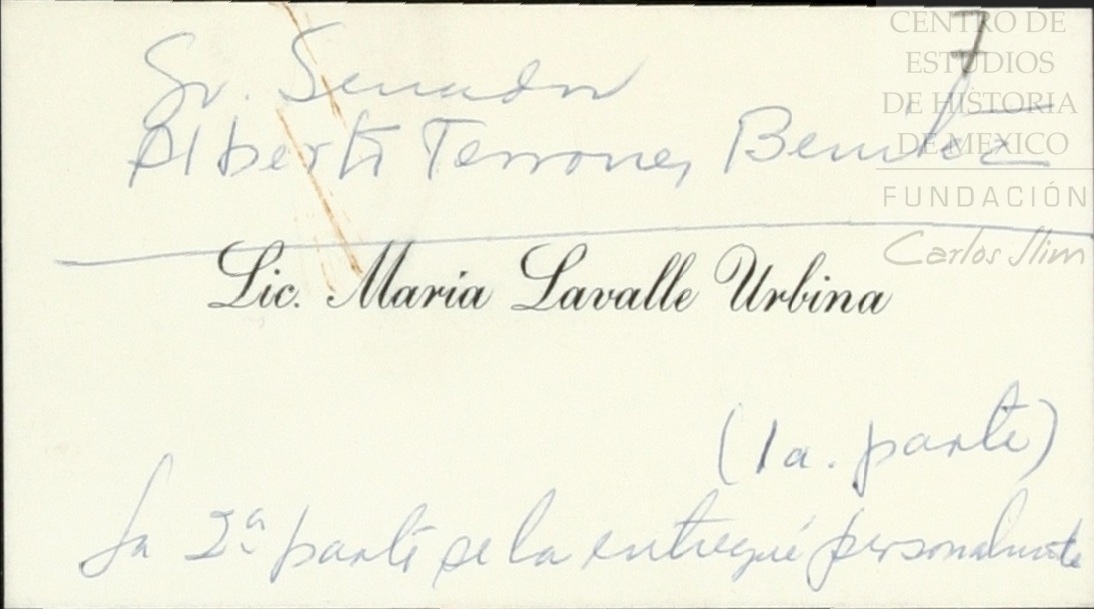 7
Sr. Senador
Alberto Terrones Benítez
Lic. María Lavalle Urbina
(1a. parte)
La 2ª parte se la entregué personalmente
CENTRO DE
ESTUDIOS
DE HISTORIA
DE MEXICO
FUNDACIÓN
Carlos Slim